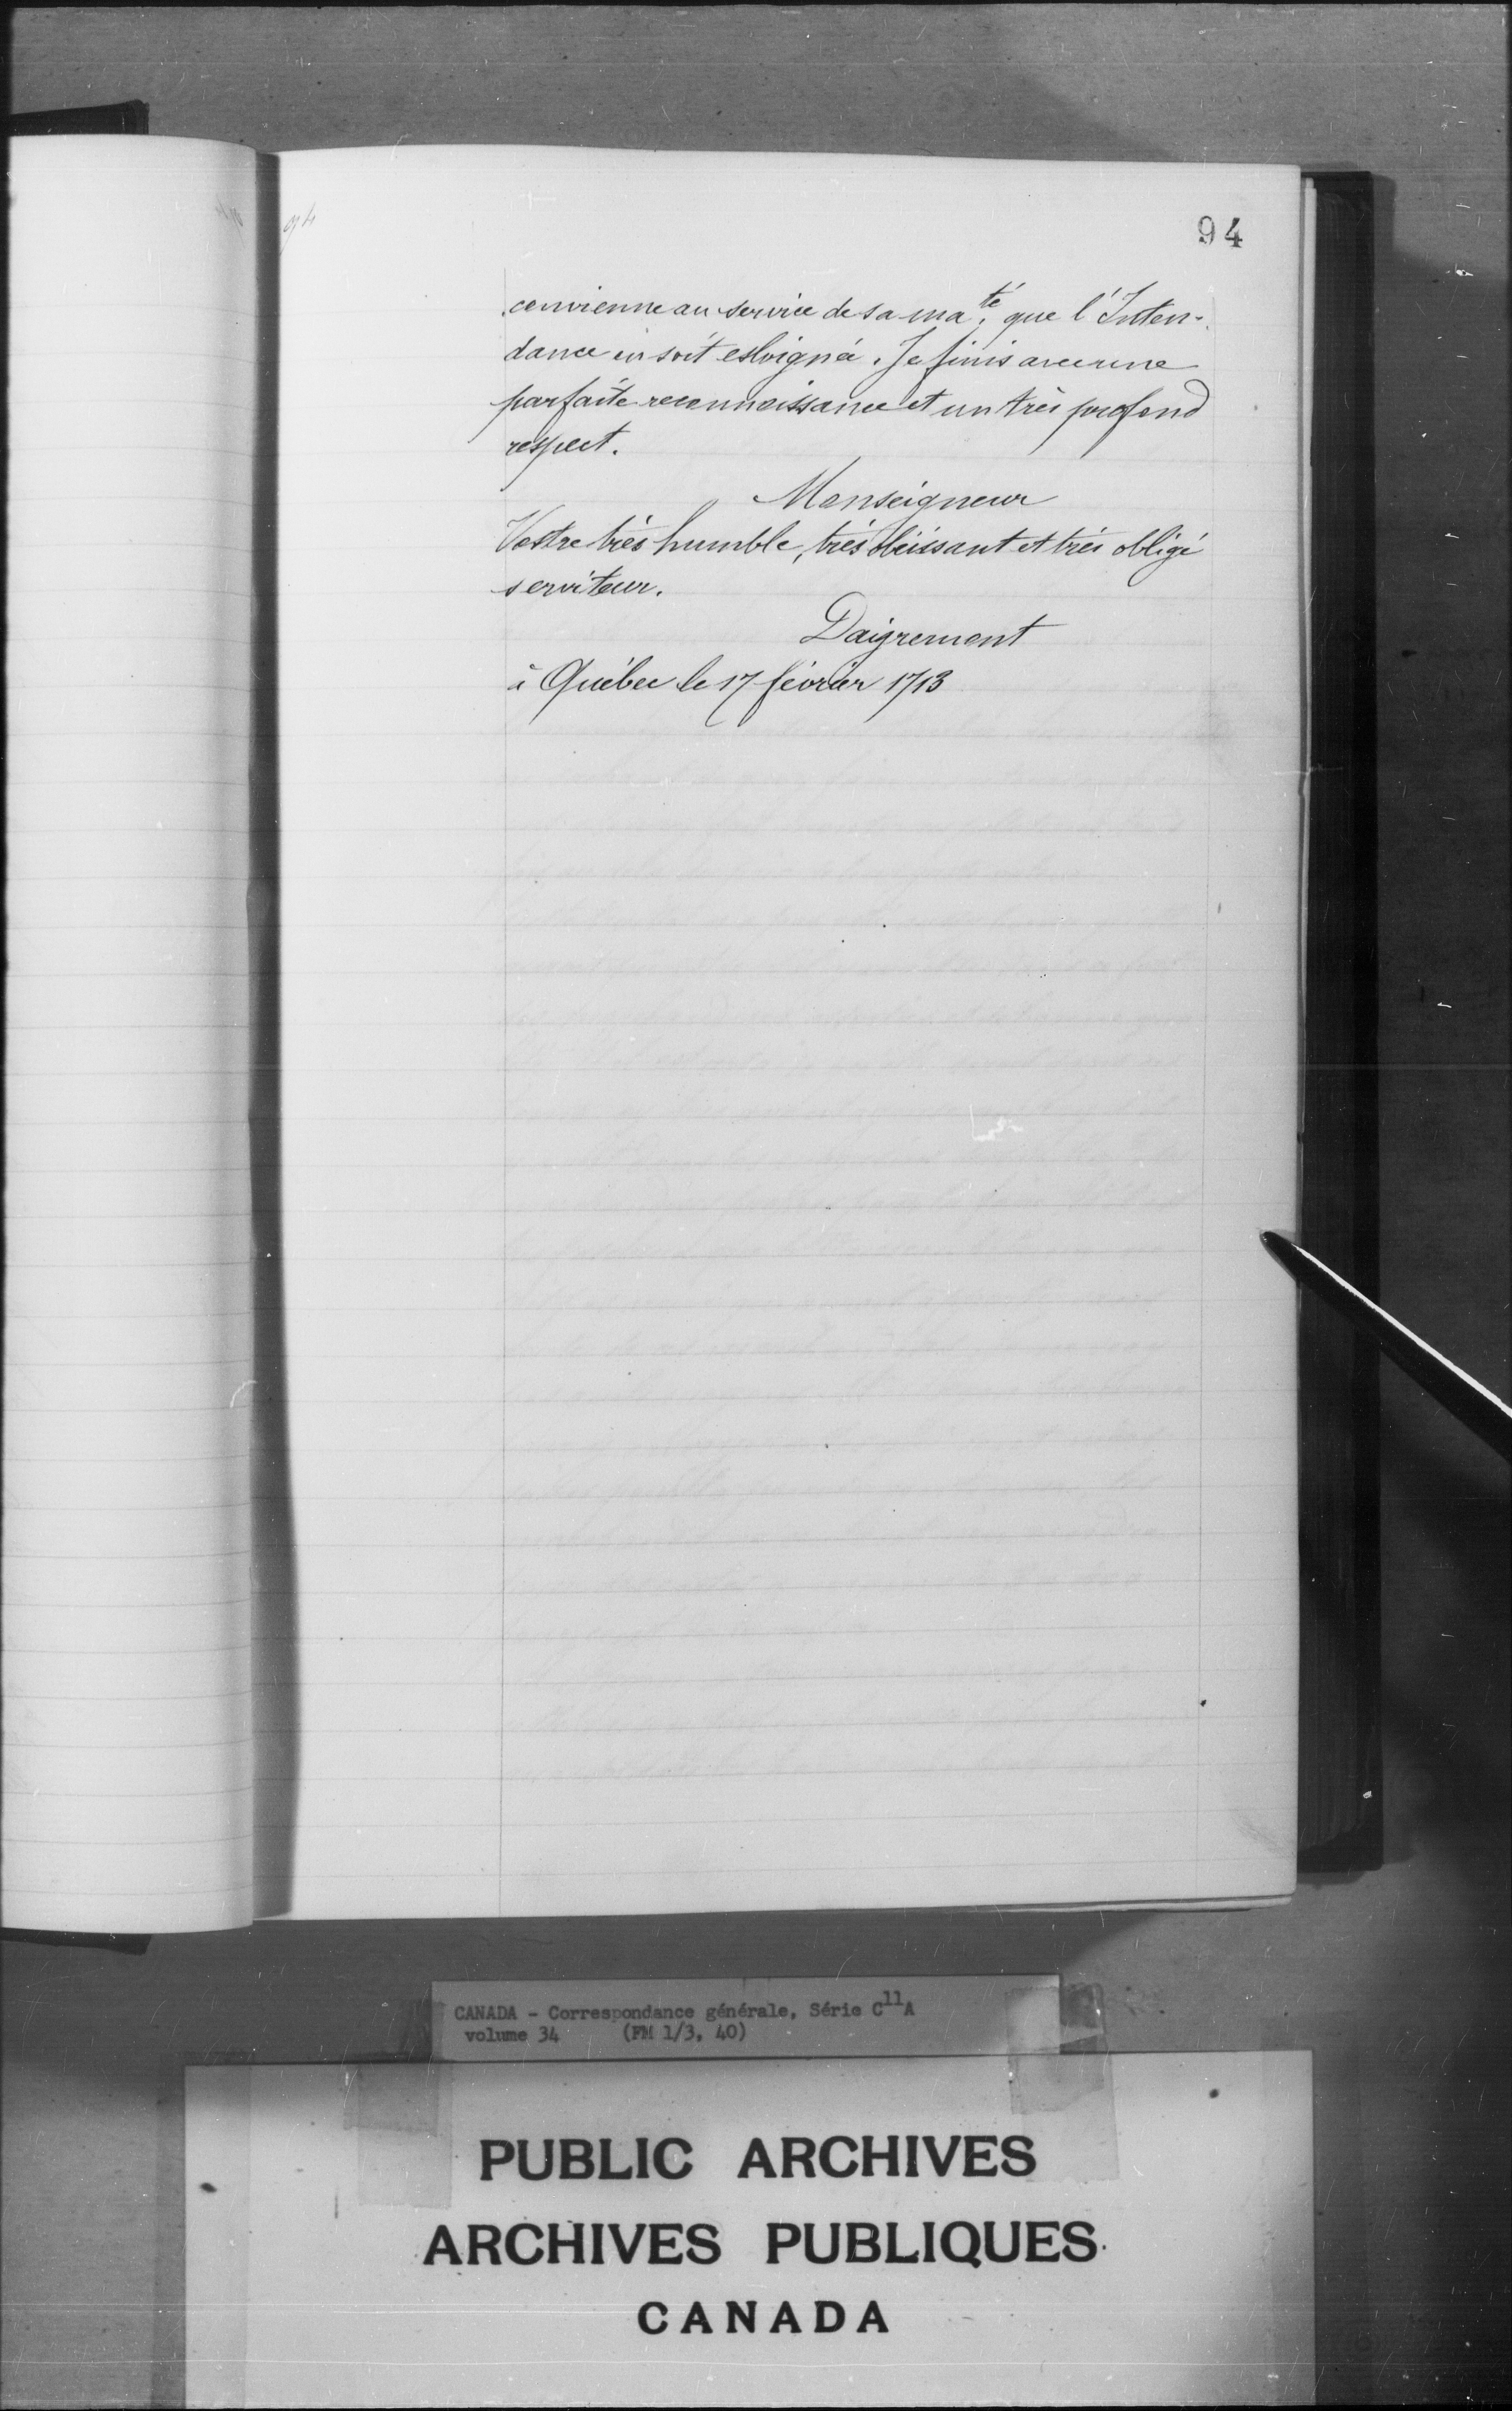 94
94
convienne au service de sa ma.té que l'Inten-
dance en soit esloignée. Je finis avec une
parfaite reconnoissance et un très profond
respect.
Monseigneur
Vostre très humble, très obéissant et très obligé
serviteur.
Daigremont
à Québec le 17 février 1713
CANADA - Correspondance générale, Série C11A
volume 34 (FM 1/3, 40)
PUBLIC ARCHIVES
ARCHIVES PUBLIQUES
CANADA